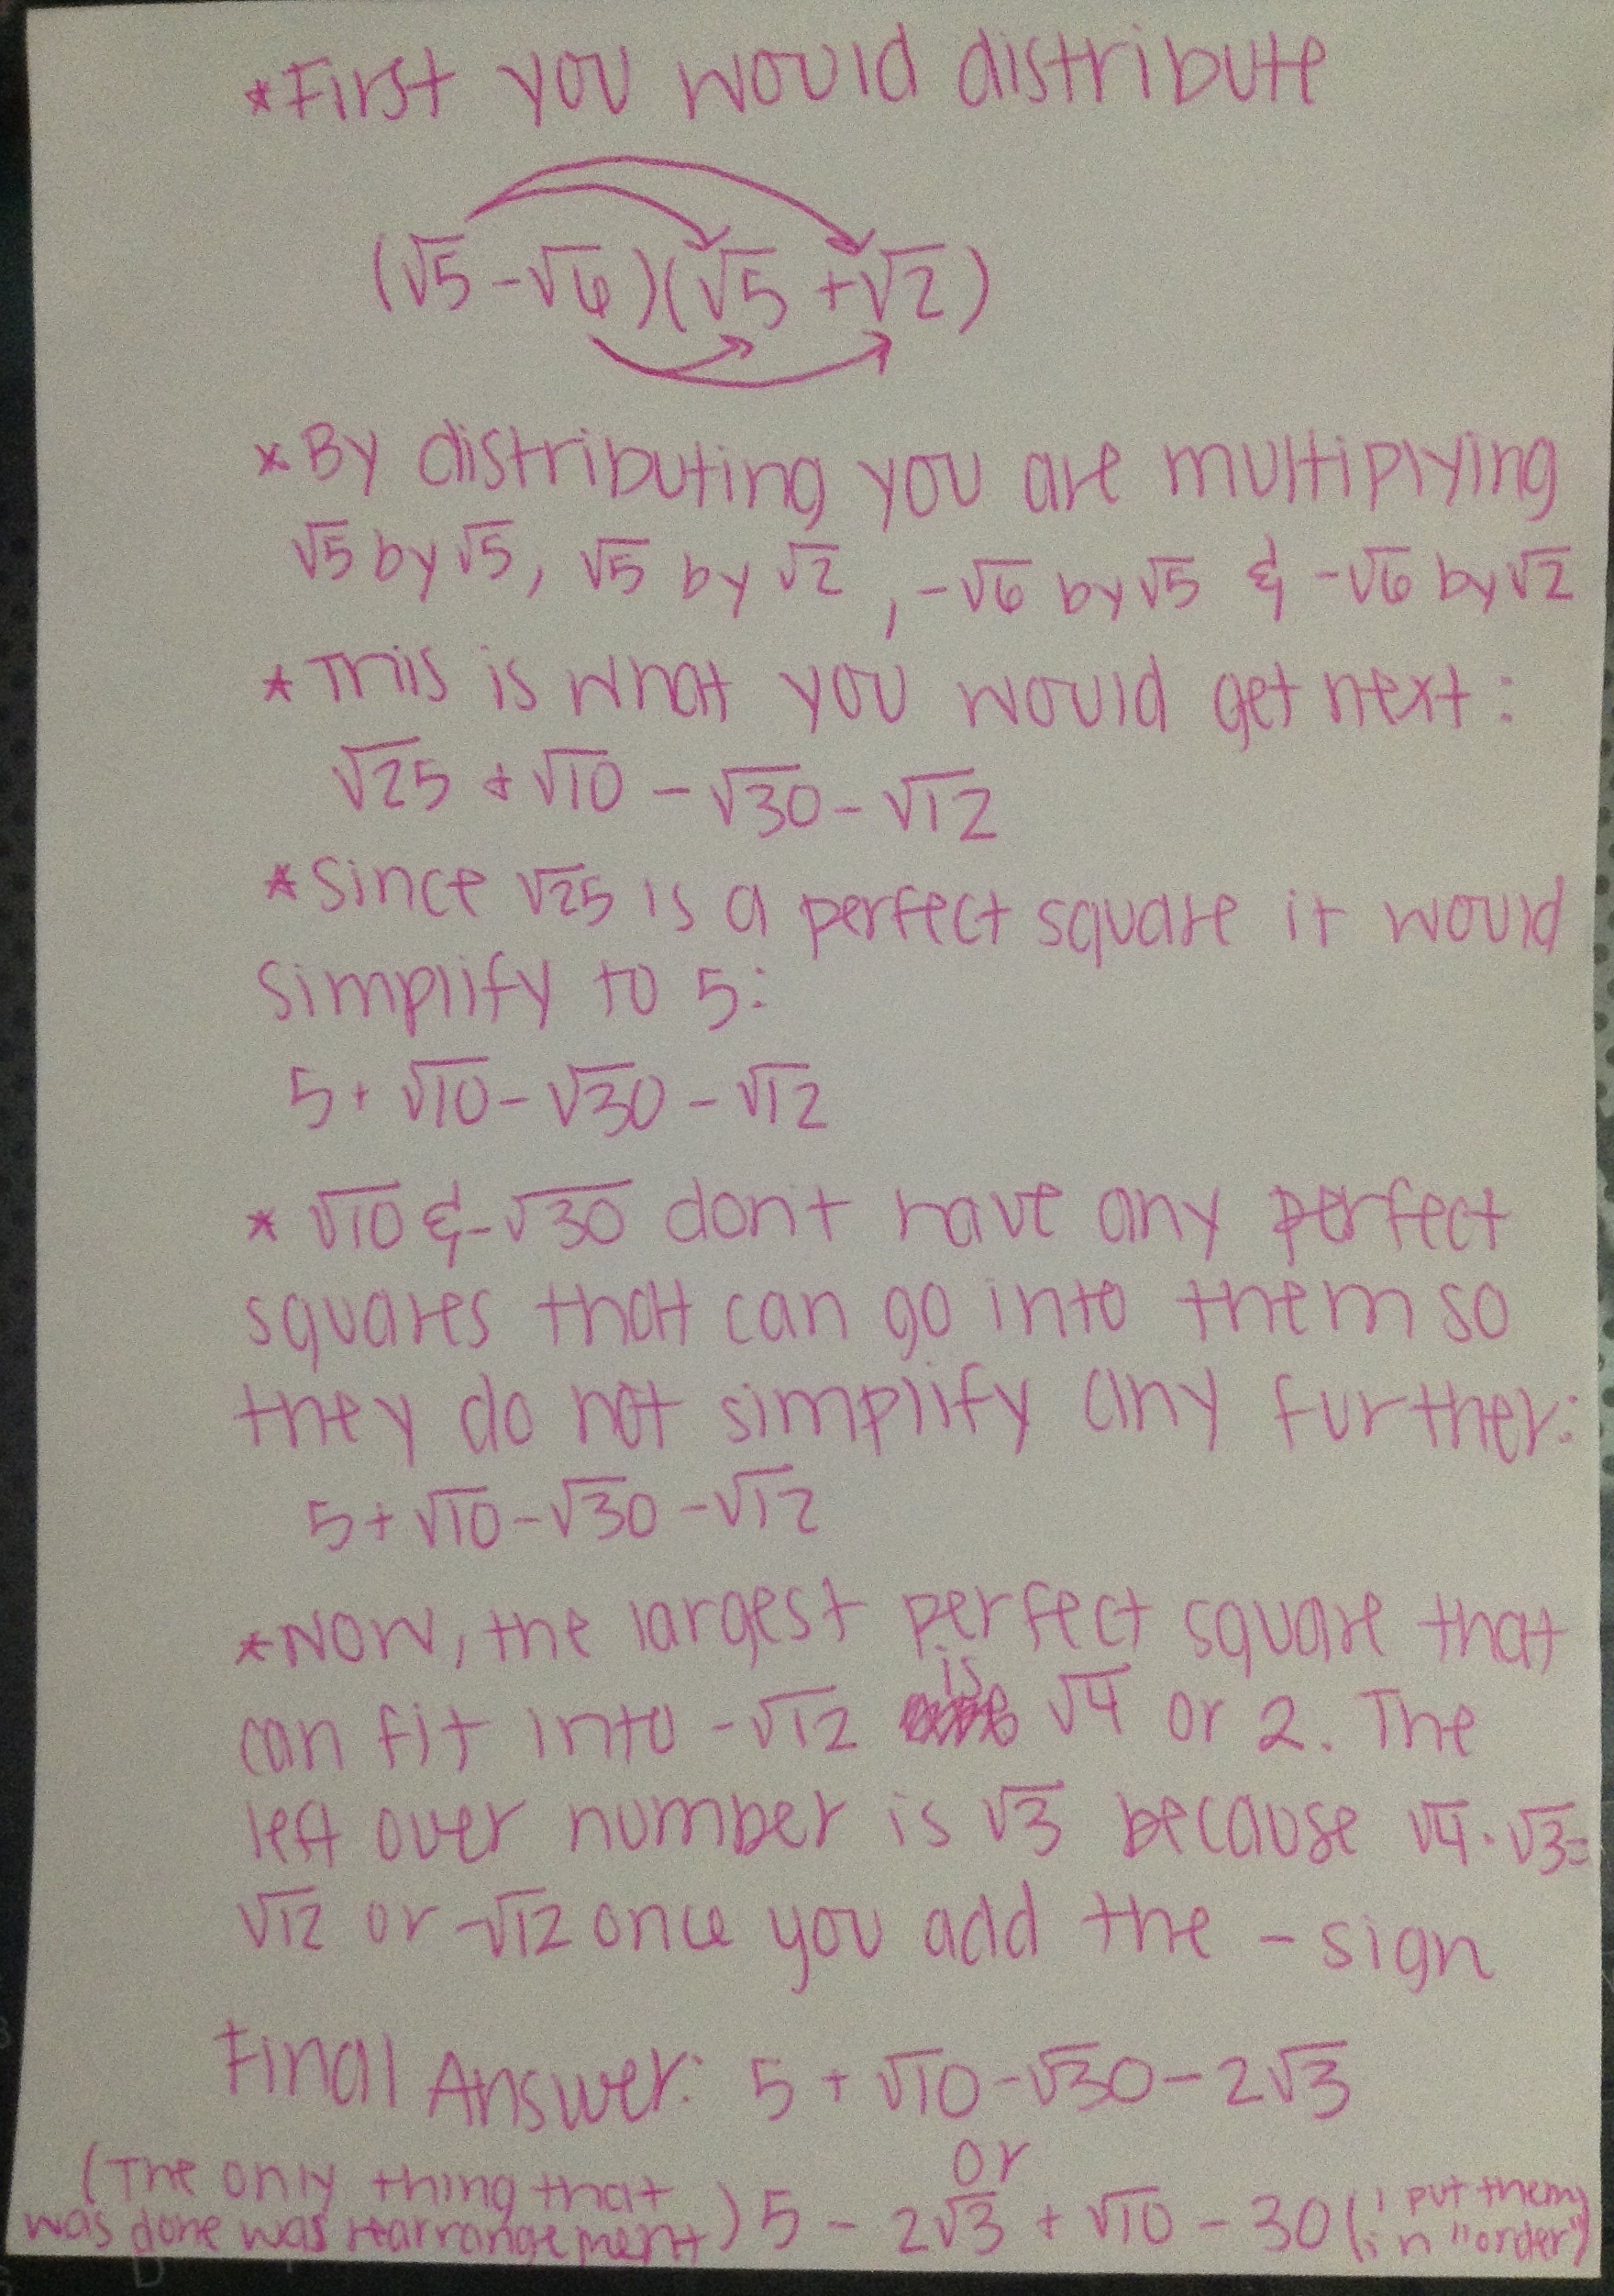 *First you would distribute
(√5-√6)(√5+√2)
*By distributing you are multiplying
√5 by √5, √5 by √2, -√6 by √5 & -√6 by √2
*This is what you would get next:
√25 + √10 - √30 - √12
*Since √25 is a perfect square it would
simplify to 5:
5+ √10 - √30 - √12
*√10 & -√30 don't have any perfect
squares that can go into them so
they do not simplify any further:
5+√10-√30-√12
*Now, the largest perfect square that
can fit into -√12 is √4 or 2. The
left over number is √3 because √4·√3=
√12 or -√12 once you add the - sign
Final Answer: 5+√10-√30-2√3
or
(The only thing that was done was rearrangement) 5 - 2√3 + √10 - 30 (i put them in "order")